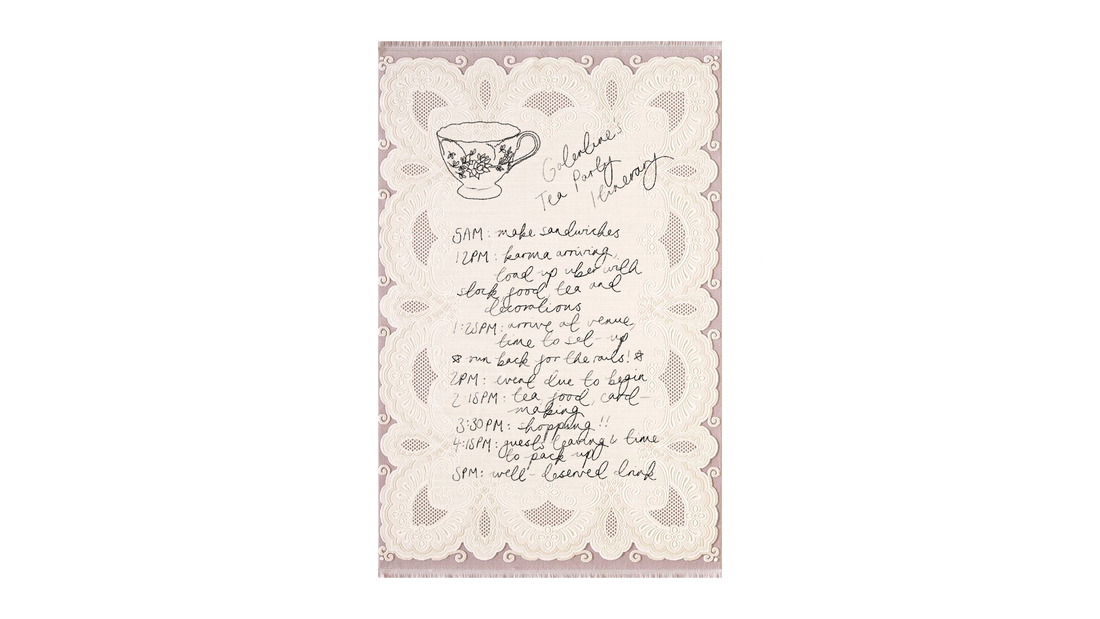 Galentine's
Tea Party
Itinerary
5AM: make sandwiches
12PM: karma arriving,
load up uber with
stock, food, tea and
decorations
1:25PM: arrive at venue,
time to set-up
☆ run back for the rails! ☆
2PM: event due to begin
2:15PM: tea, food, card-
making
3:30PM: shopping!!
4:15PM: guests leaving & time
to pack up
5PM: well-deserved drink